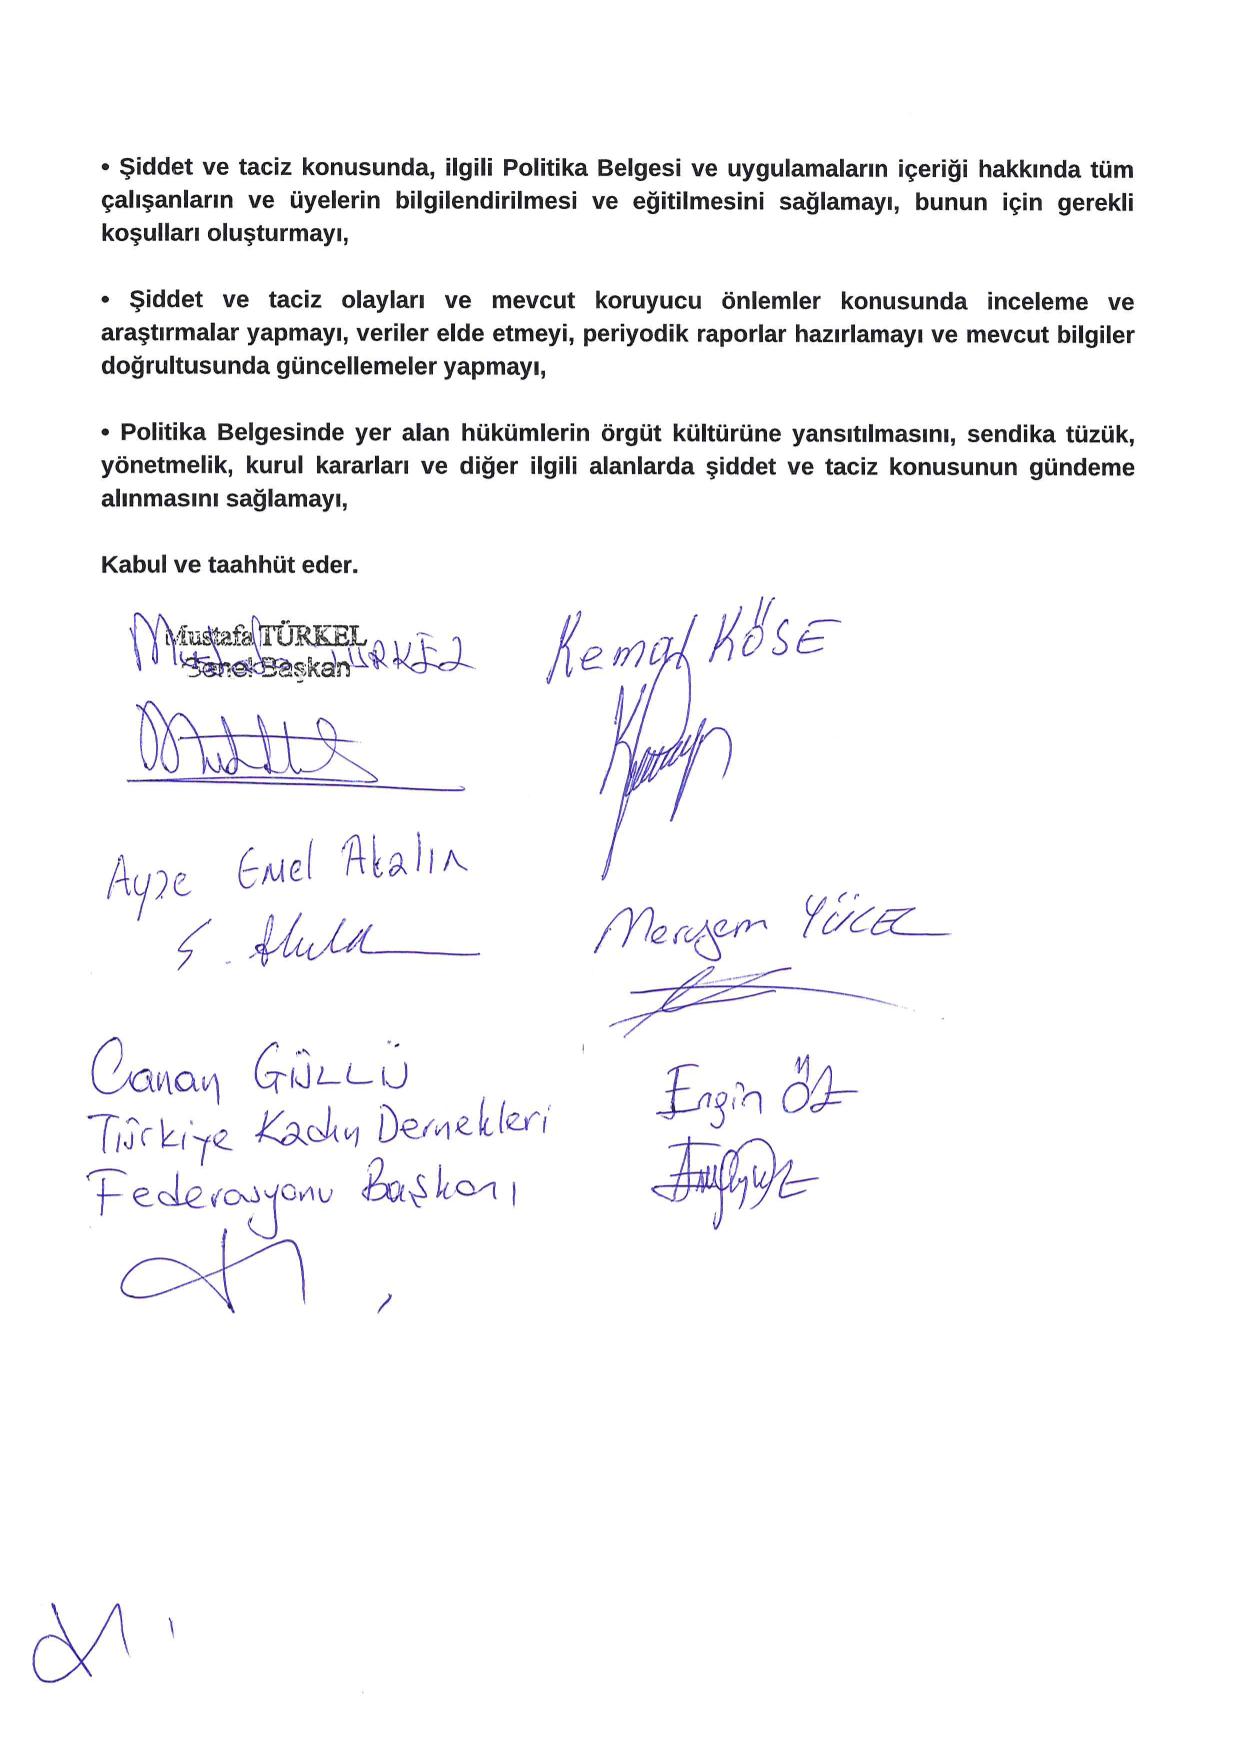 • Şiddet ve taciz konusunda, ilgili Politika Belgesi ve uygulamaların içeriği hakkında tüm
çalışanların ve üyelerin bilgilendirilmesi ve eğitilmesini sağlamayı, bunun için gerekli
koşulları oluşturmayı,
• Şiddet ve taciz olayları ve mevcut koruyucu önlemler konusunda inceleme ve
araştırmalar yapmayı, veriler elde etmeyi, periyodik raporlar hazırlamayı ve mevcut bilgiler
doğrultusunda güncellemeler yapmayı,
• Politika Belgesinde yer alan hükümlerin örgüt kültürüne yansıtılmasını, sendika tüzük,
yönetmelik, kurul kararları ve diğer ilgili alanlarda şiddet ve taciz konusunun gündeme
alınmasını sağlamayı,
Kabul ve taahhüt eder.
Mustafa TÜRKEL
Genel Başkan
Mustafa TÜRKEL
Kemal KÖSE
Ayşe Emel Akalın
Meryem YÜCEL
Canan GÜLLÜ
Türkiye Kadın Dernekleri
Federasyonu Başkanı
Engin ÖZ